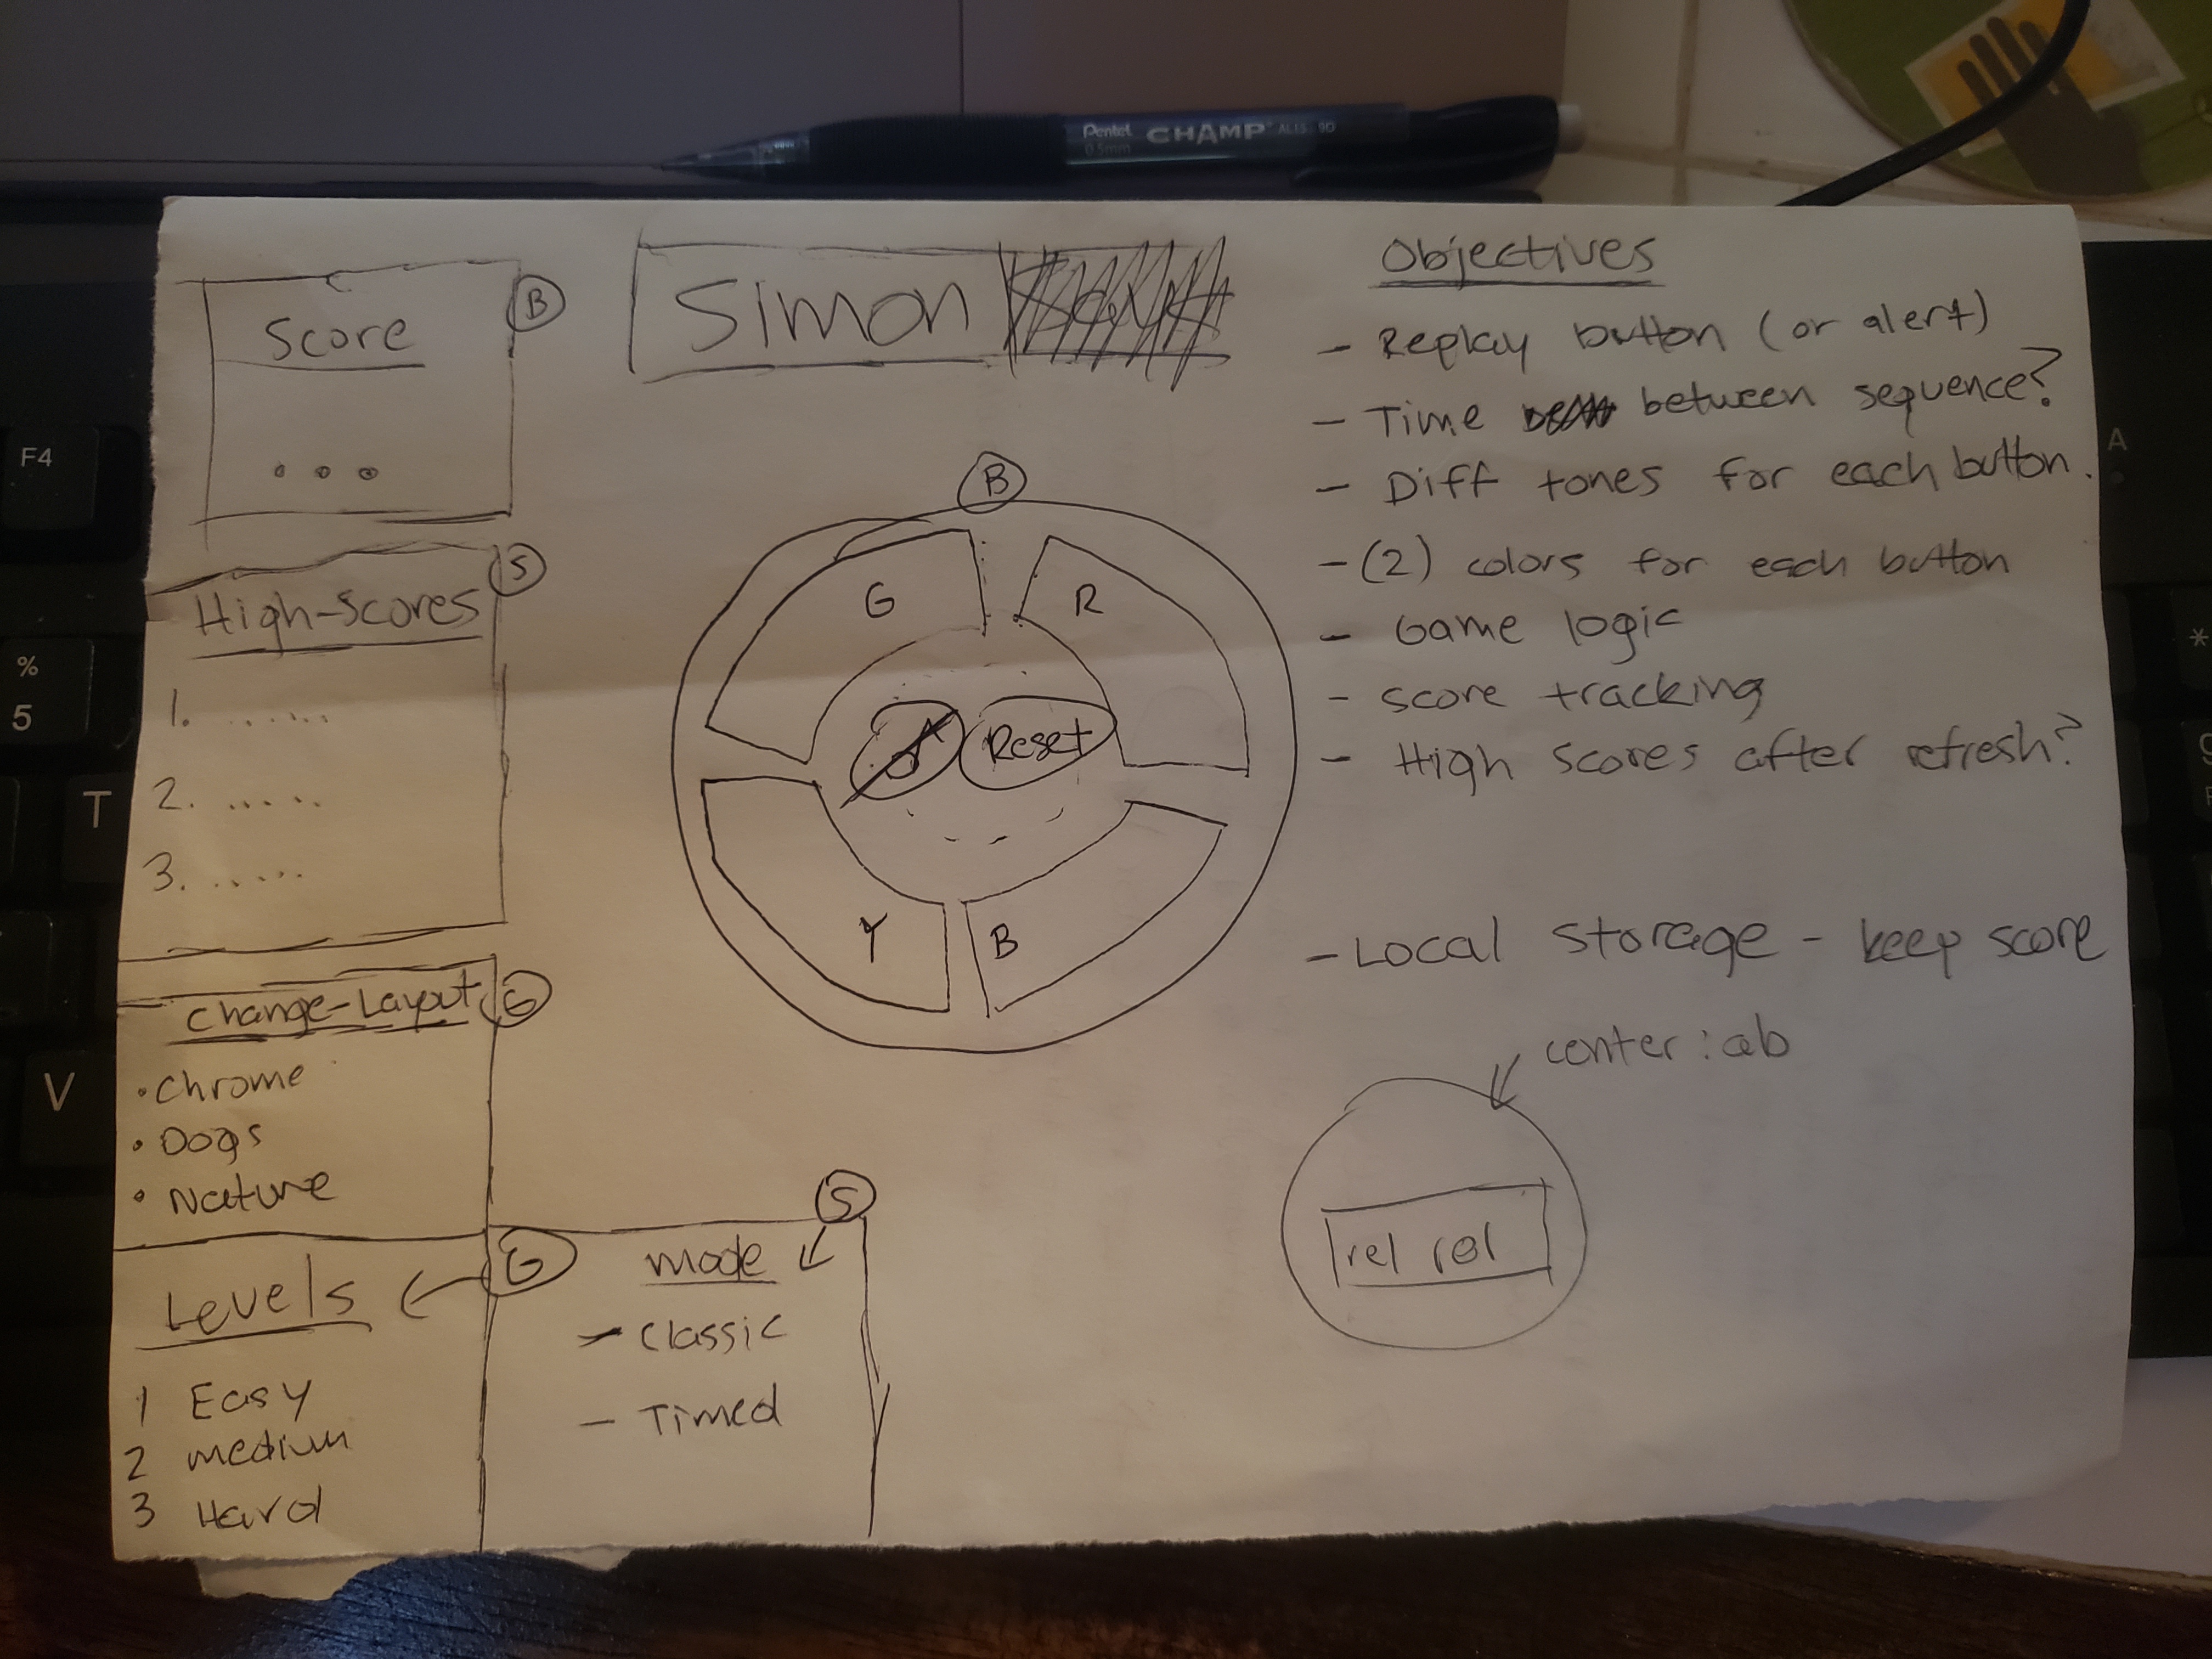 Pentel
0.5mm
CHAMP
AL15-9D
F4
%
5
T
V
A
*
Score
B
...
High-Scores
S
1. ......
2. .....
3. .....
Change-Layout
G
• Chrome
• Dogs
• Nature
Levels
G
1 Easy
2 medium
3 Hard
mode
S
- Classic
- Timed
Simon
B
G
R
Reset
Y
B
Objectives
- Replay button (or alert)
- Time between sequence?
- Diff tones for each button.
- (2) colors for each button
- Game logic
- score tracking
- High scores after refresh?
- Local storage - keep score
center: ab
rel rel